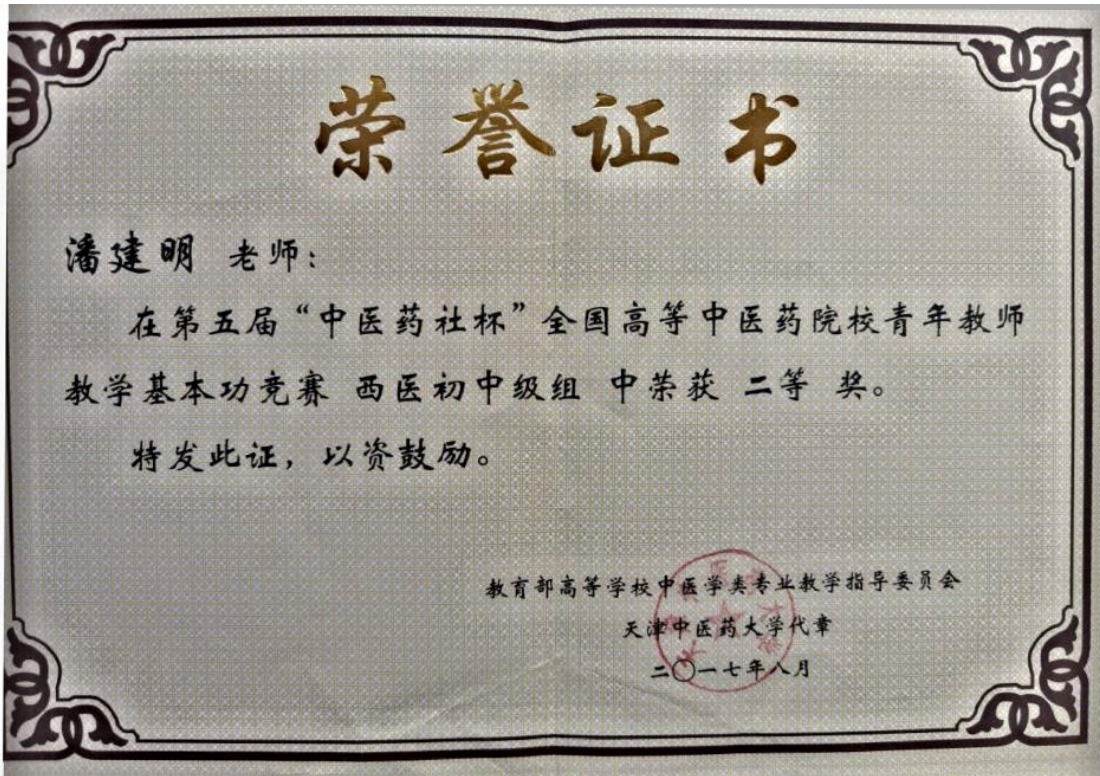 荣誉证书
潘建明 老师：
在第五届“中医药社杯”全国高等中医药院校青年教师
教学基本功竞赛 西医初中级组 中荣获 二等 奖。
特发此证，以资鼓励。
教育部高等学校中医学类专业教学指导委员会
天津中医药大学代章
二〇一七年八月